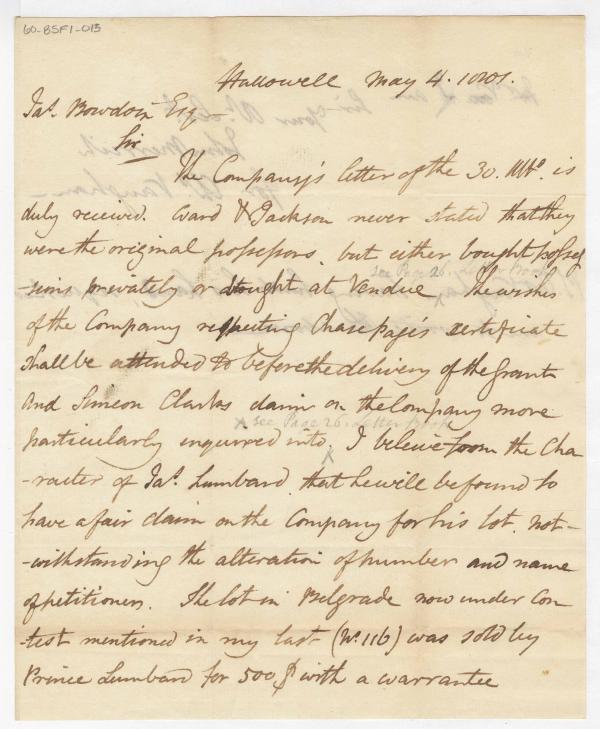 60-BSF1-015
Hallowell May 4. 1801.
Jas. Bowdoin Esq
Sir
The Company's letter of the 30. Ulto. is
duly received. Ward & Jackson never stated that they
were the original possessors, but either bought posses
-sions privately or bought at Vendue The wishes
see Page 26
of the Company respecting Chase page's certificate
shall be attended to before the delivery of the Grant
and Simeon Clarks claim on the Company more
x see Page 26. Letter Book
particularly inquired into, I beleive from the Cha
-racter of Jas. Lumbard that he will be found to
have a fair claim on the Company for his lot, not-
-withstanding the alteration of number and name
of petitioners. The lot in Belgrade now under Con
-test mentioned in my last (No. 116) was sold by
Prince Lumbard for 500 $ with a warrantee